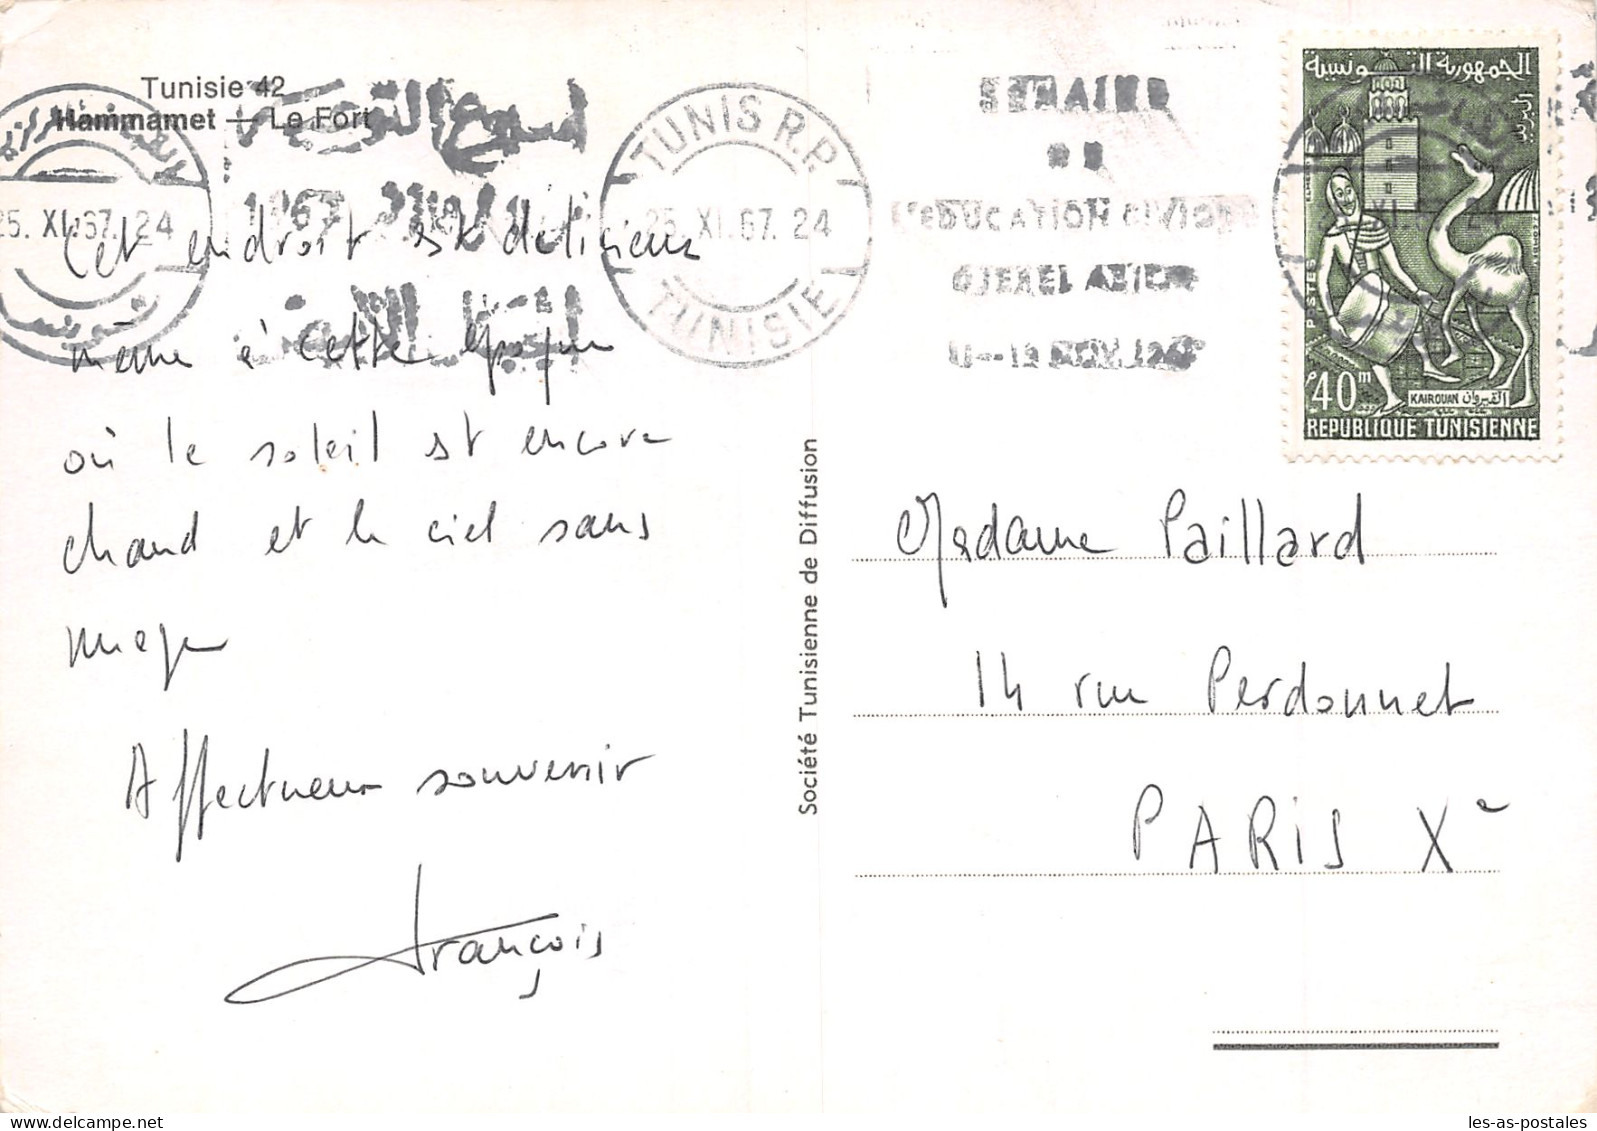 Tunisie 42
Hammamet — Le Fort
25. XI. 67. 24
1967
TUNIS R.P.
25. XI. 67. 24
TUNISIE
SEMAINE
DE
L'EDUCATION CIVIQUE
الجمهورية التونسية
البريد
POSTES
40m
KAIROUAN القيروان
REPUBLIQUE TUNISIENNE
Cet endroit est délicieux
même à cette époque
où le soleil est encore
chaud et le ciel sans
nuage
Affectueux souvenir
François
Société Tunisienne de Diffusion
Madame Paillard
14 rue Perdonnet
PARIS Xe
les-as-postales